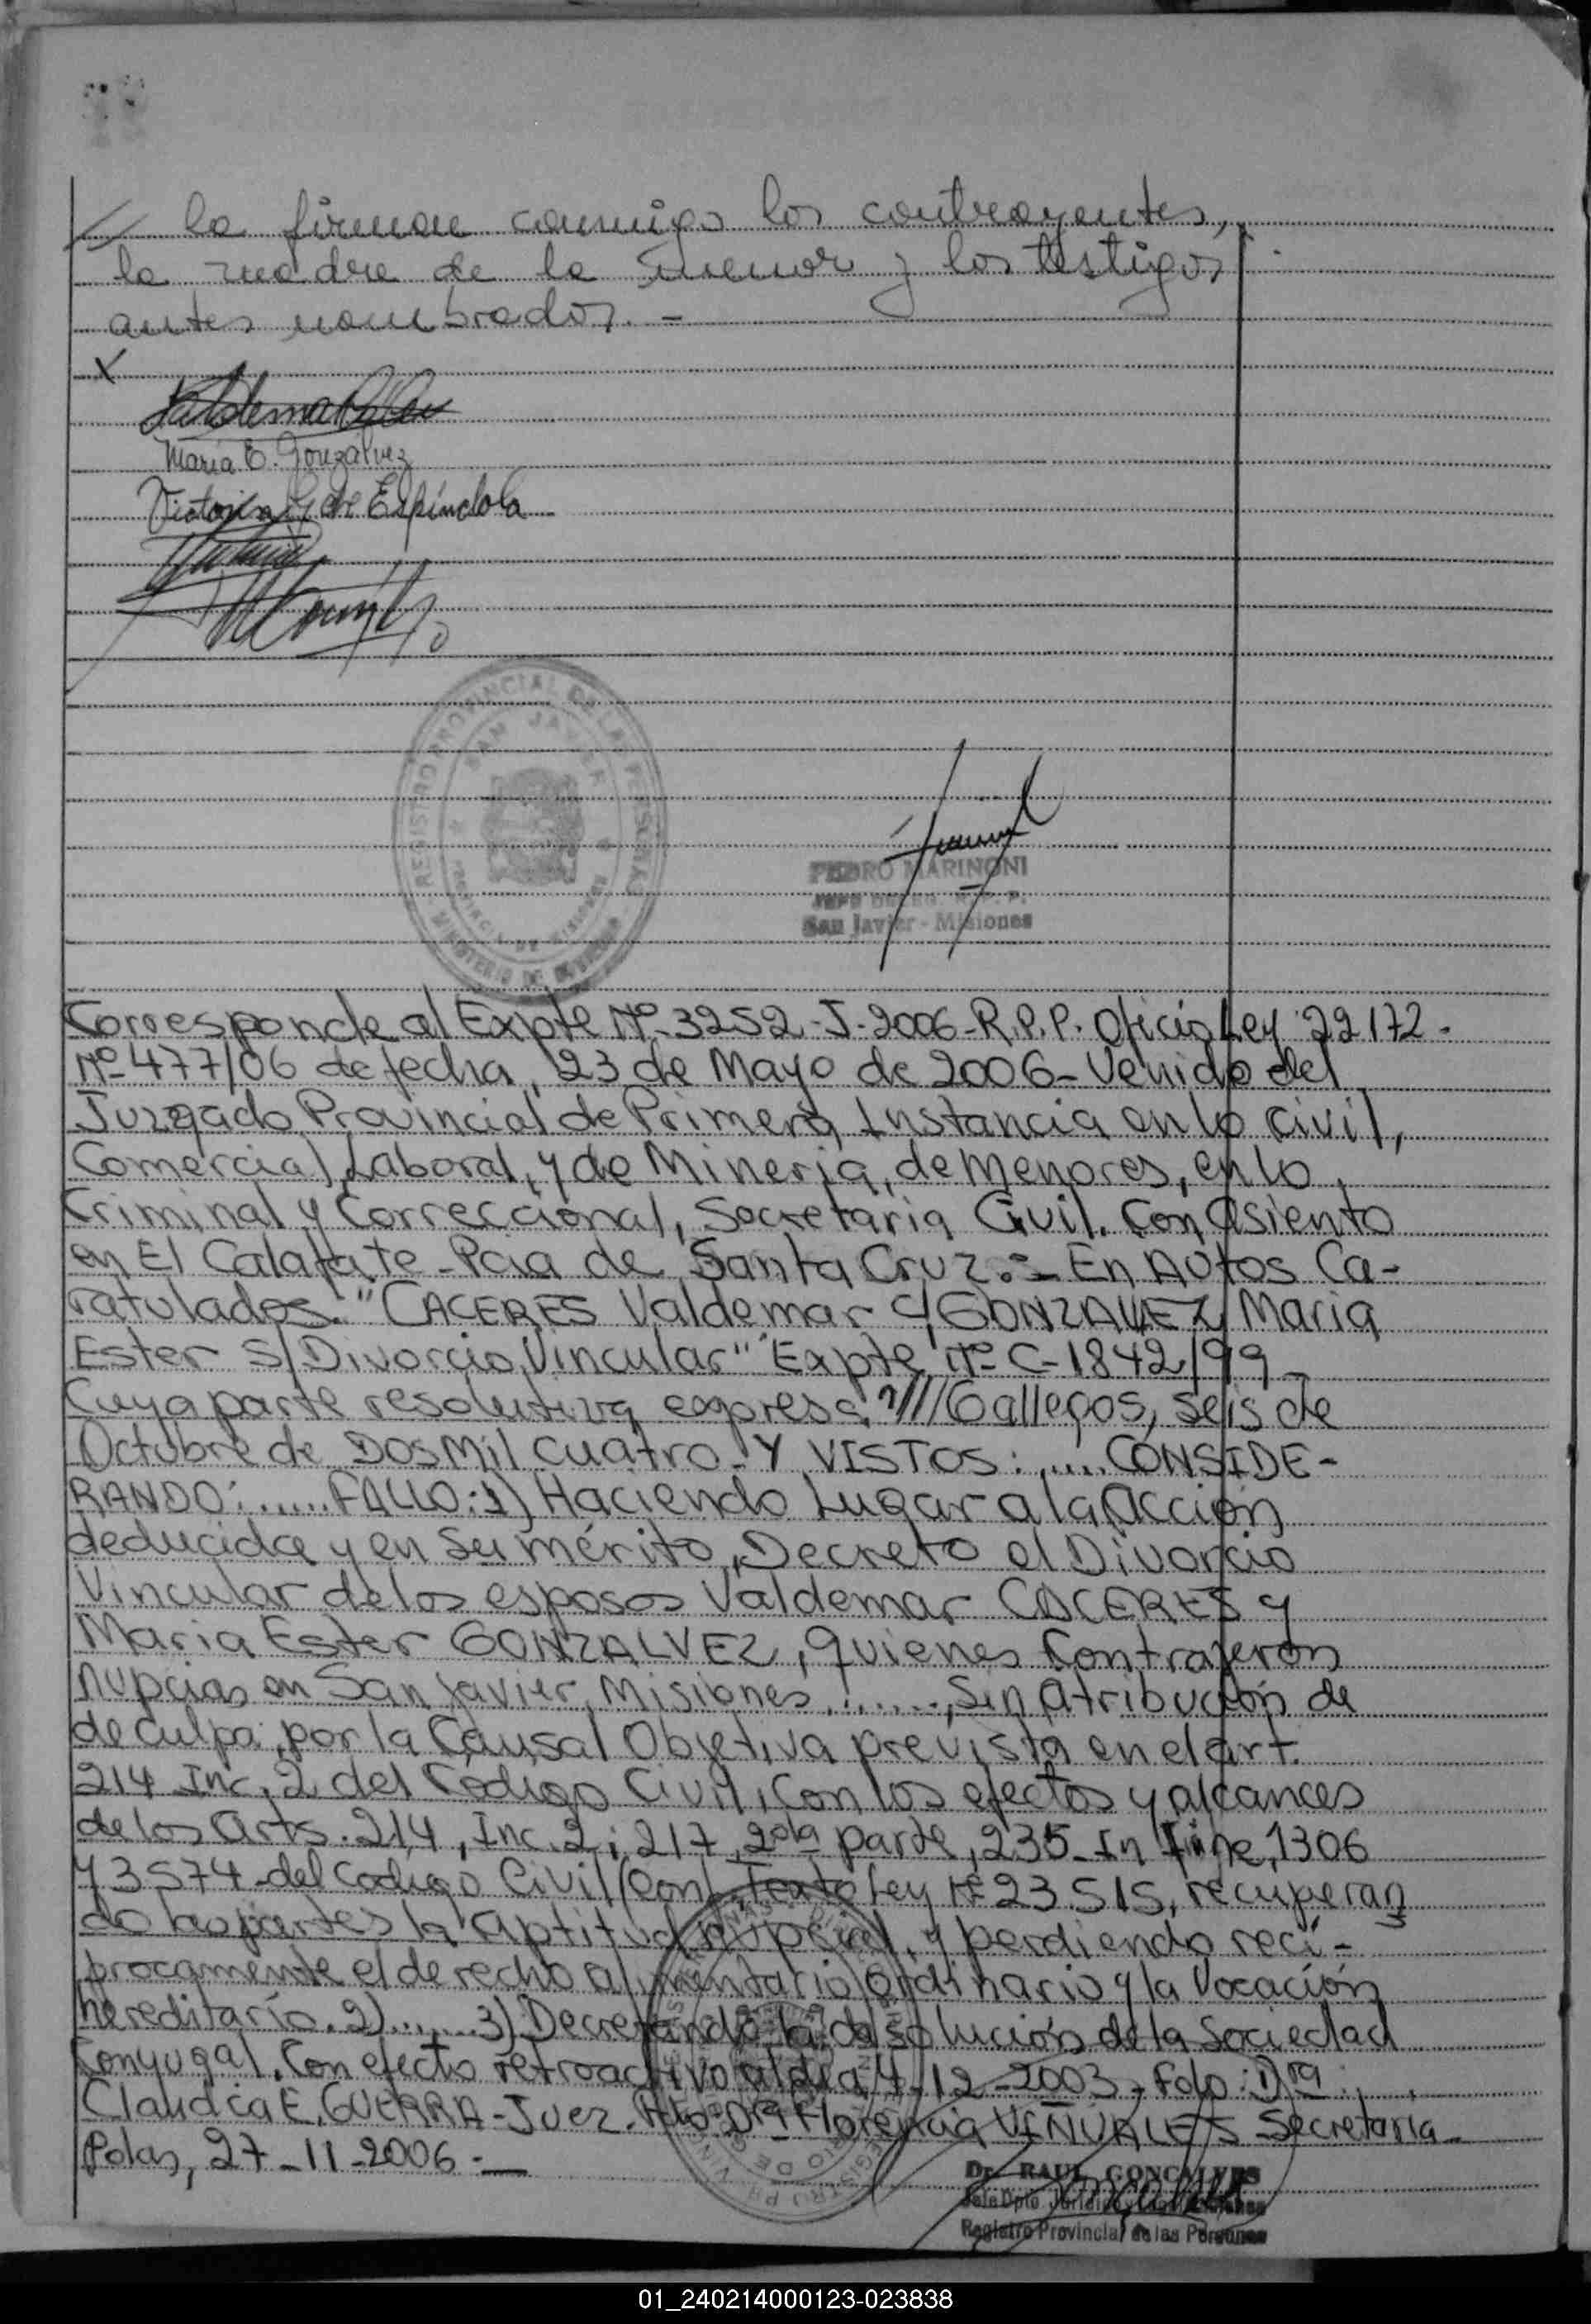 la firman conmigo los contrayentes,
la madre de la menor y los testigos
antes nombrados. -
X
Maria E. Gonzalvez
Victoria G de Espíndola
REGISTRO PROVINCIAL DE LAS PERSONAS
SAN JAVIER
PROVINCIA DE MISIONES
MINISTERIO DE GOBIERNO
PEDRO MARINONI
San Javier - Misiones
Corresponde al Expte Nº-3252-J-2006-R.P.P. Oficio Ley 22172-
Nº-477/06 de fecha, 23 de Mayo de 2006-Venido del
Juzgado Provincial de Primera Instancia en lo Civil,
Comercial, Laboral, y de Mineria, de Menores, en lo
Criminal y Correccional, Secretaria Civil. Con Asiento
en El Calafate-Pcia de Santa Cruz.=En Autos Ca-
ratulados. "CACERES Valdemar c/GONZALVEZ Maria
Ester S/Divorcio Vincular" Expte Nº-C-1842/99-
Cuya parte resolutiva expresa "///Gallegos, seis de
Octubre de Dos Mil Cuatro-Y VISTOS:.....CONSIDE-
RANDO:......FALLO:1) Haciendo Lugar a la Acción
deducida y en su mérito, Decreto el Divorcio
Vincular de los esposos Valdemar CACERES y
Maria Ester GONZALVEZ, quienes Contrajeron
nupcias en San Javier, Misiones.......,Sin Atribución de
de Culpa; por la Causal Objetiva prevista en el art.
214 Inc. 2 del Código Civil, con los efectos y alcances
de los Arts. 214, Inc. 2; 217, 2da parte, 235-In Fine, 1306
y 3574-del Codigo Civil (Conf. Texto Ley Nº 23.515, recuperan
do las partes la Aptitud nupcial, y perdiendo recí-
procamente el derecho alimentario ordinario y la Vocación
hereditario. 2)........3) Decretando la disolución de la Sociedad
Conyugal, Con efecto retroactivo al día 4-12-2003-Fdo: Dra
Claudia E. GUERRA-Juez-Fdo-Dra Florencia VIÑUALES Secretaria-
Pdas, 27-11-2006-
Dr. RAUL GONCALVES
Registro Provincial de las Personas
01_240214000123-023838